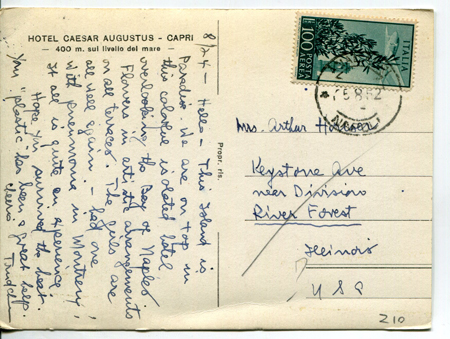 HOTEL CAESAR AUGUSTUS - CAPRI
— 400 m. sul livello del mare —
8/24 — Hello — This Island is
Paradise. We are on top in
this colorful isolated hotel
overlooking the Bay of Naples
Flowers in artistic arrangements
on all terraces. The girls are
all well again. - had one
with pneumonia in Montreux!
It all is quite an experience
Hope you survived the heat.
You "plastic" has been a great help.
Propr. ris.
ITALIA
L. 100
POSTA
AEREA
Mrs. Arthur
Keystone Ave
near Division
River Forest
Illinois
USA
210